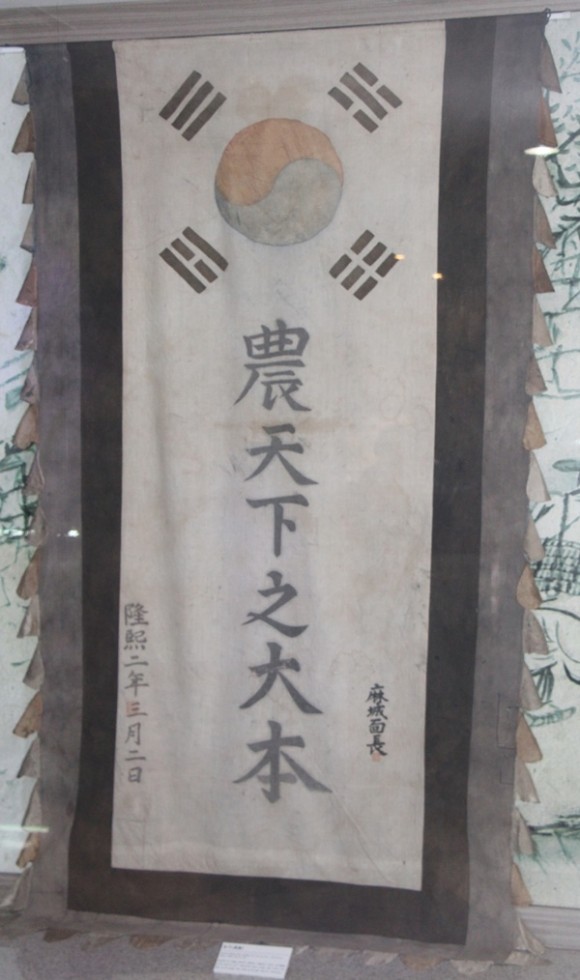 農天下之大本
麻城面長
隆熙二年三月二日